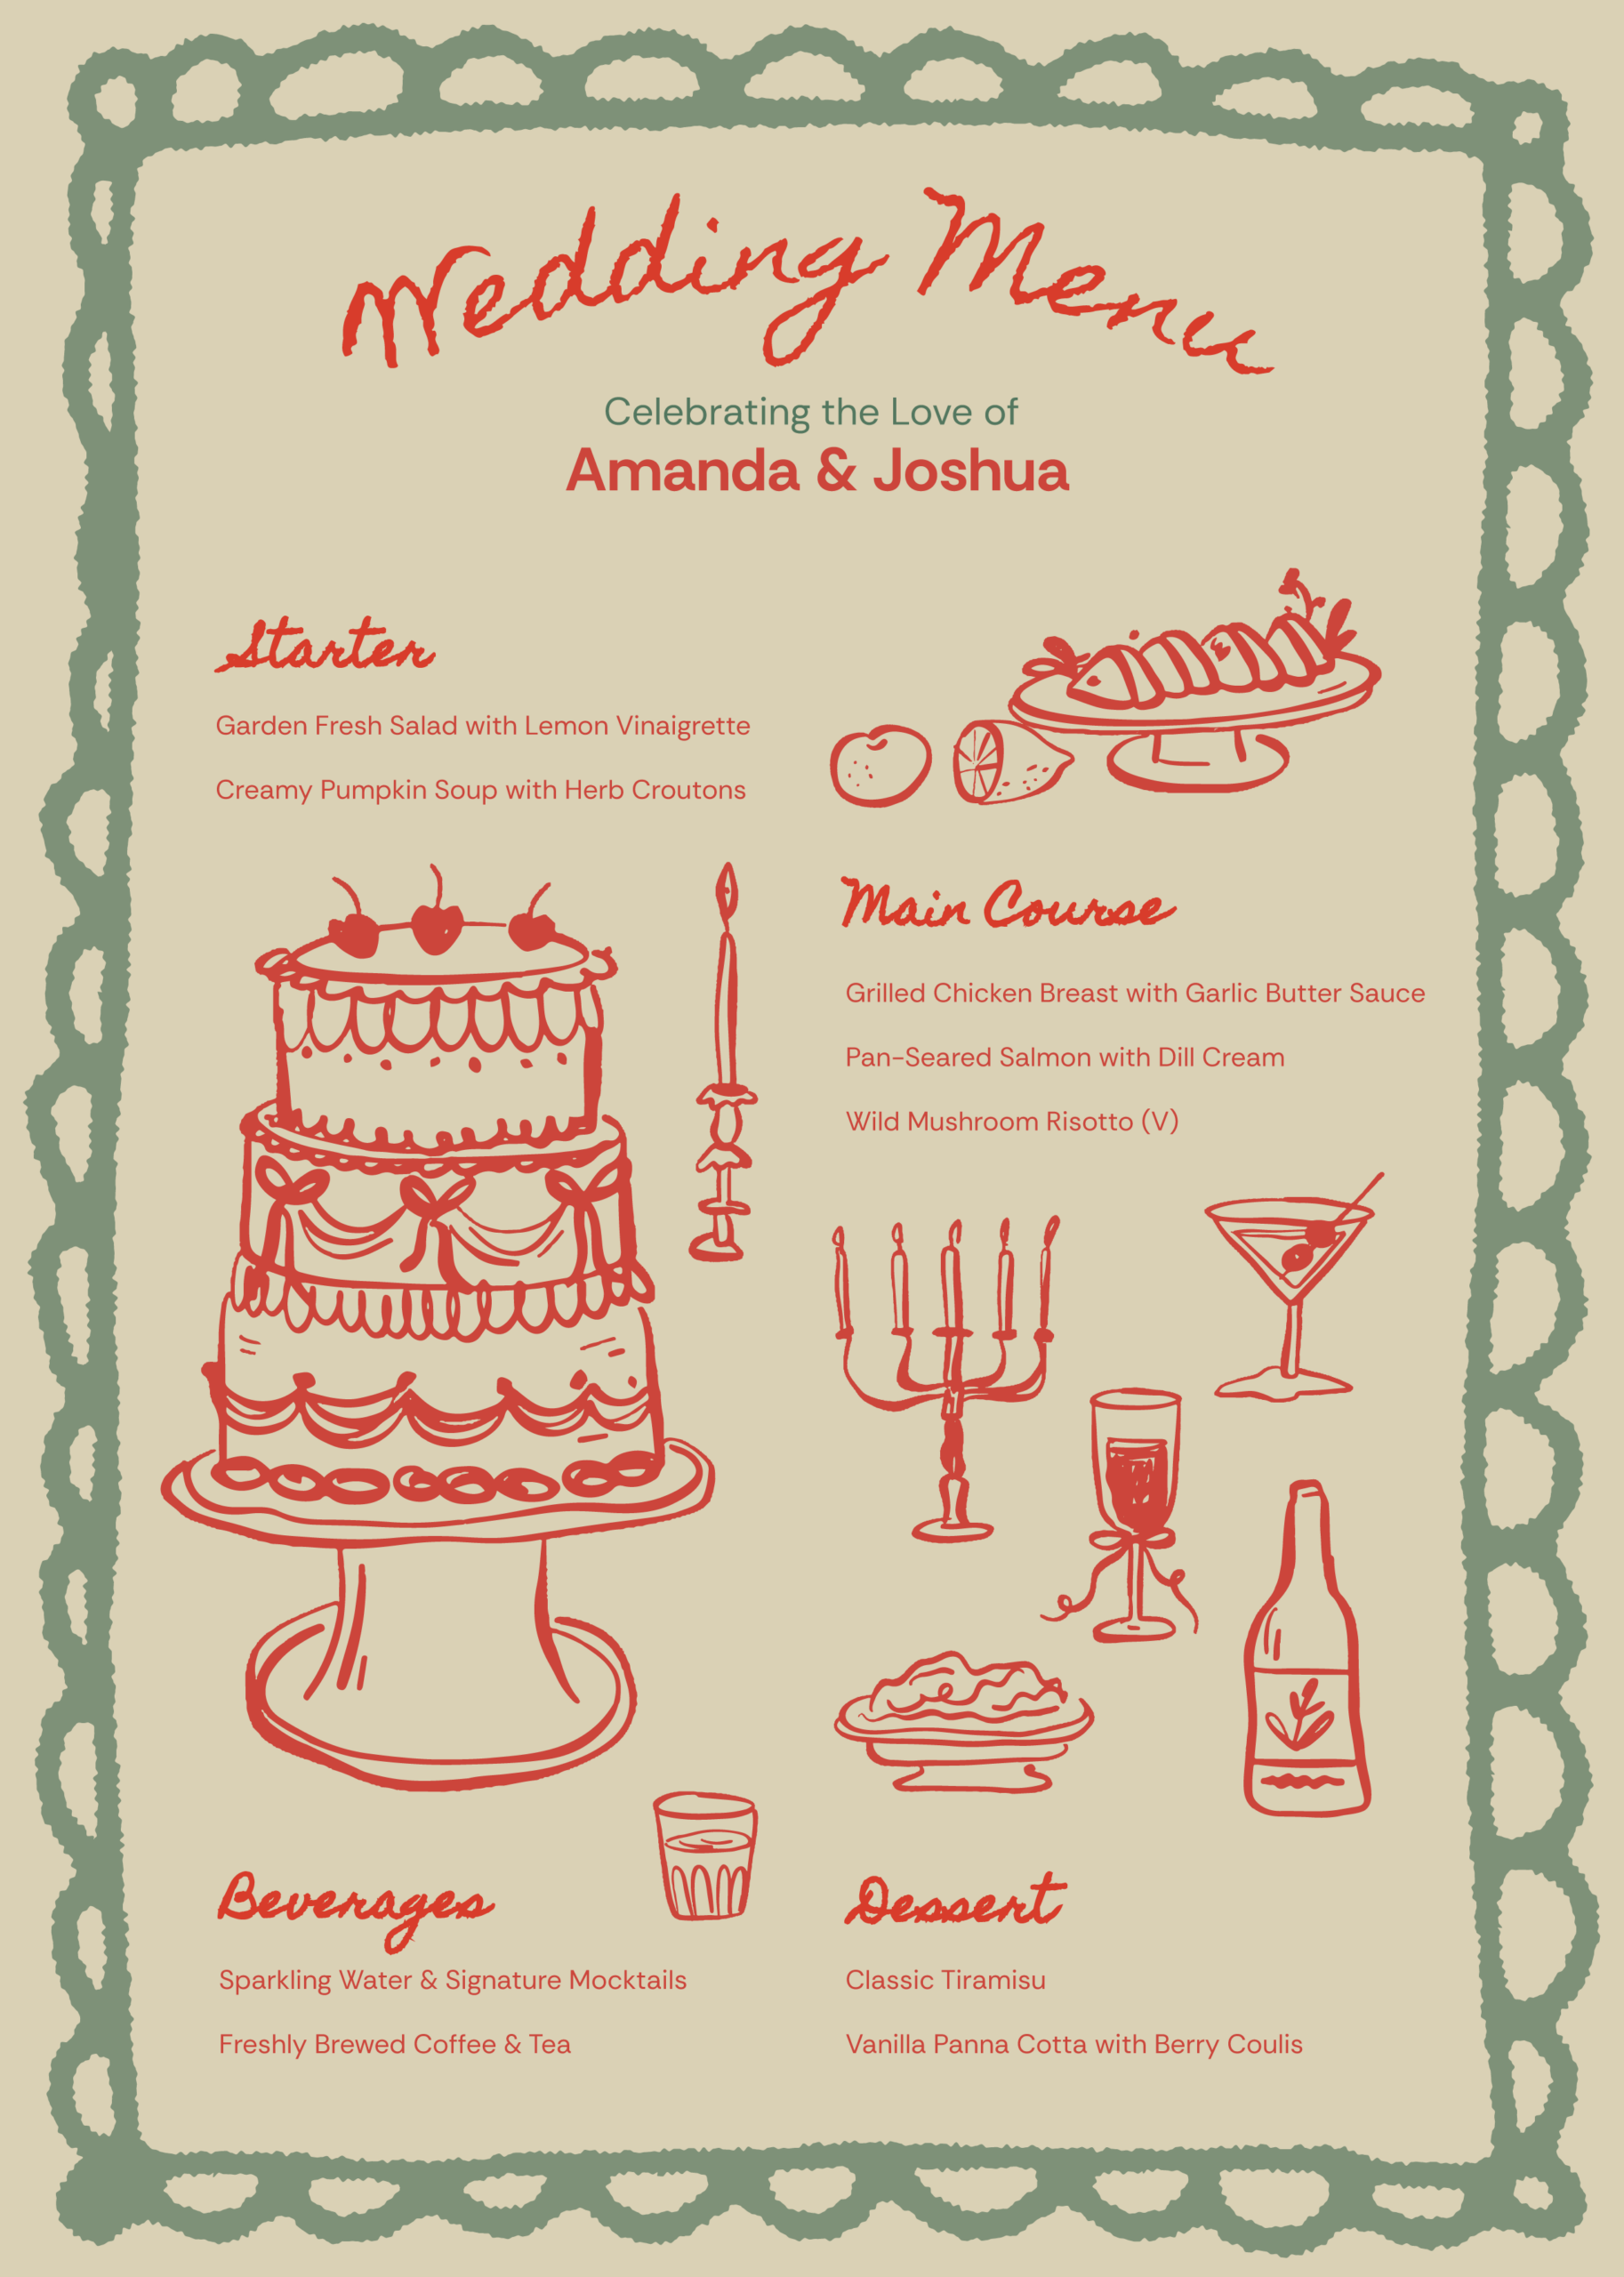 Wedding Menu
Celebrating the Love of
Amanda & Joshua
Starter
Garden Fresh Salad with Lemon Vinaigrette
Creamy Pumpkin Soup with Herb Croutons
Main Course
Grilled Chicken Breast with Garlic Butter Sauce
Pan-Seared Salmon with Dill Cream
Wild Mushroom Risotto (V)
Beverages
Sparkling Water & Signature Mocktails
Freshly Brewed Coffee & Tea
Dessert
Classic Tiramisu
Vanilla Panna Cotta with Berry Coulis